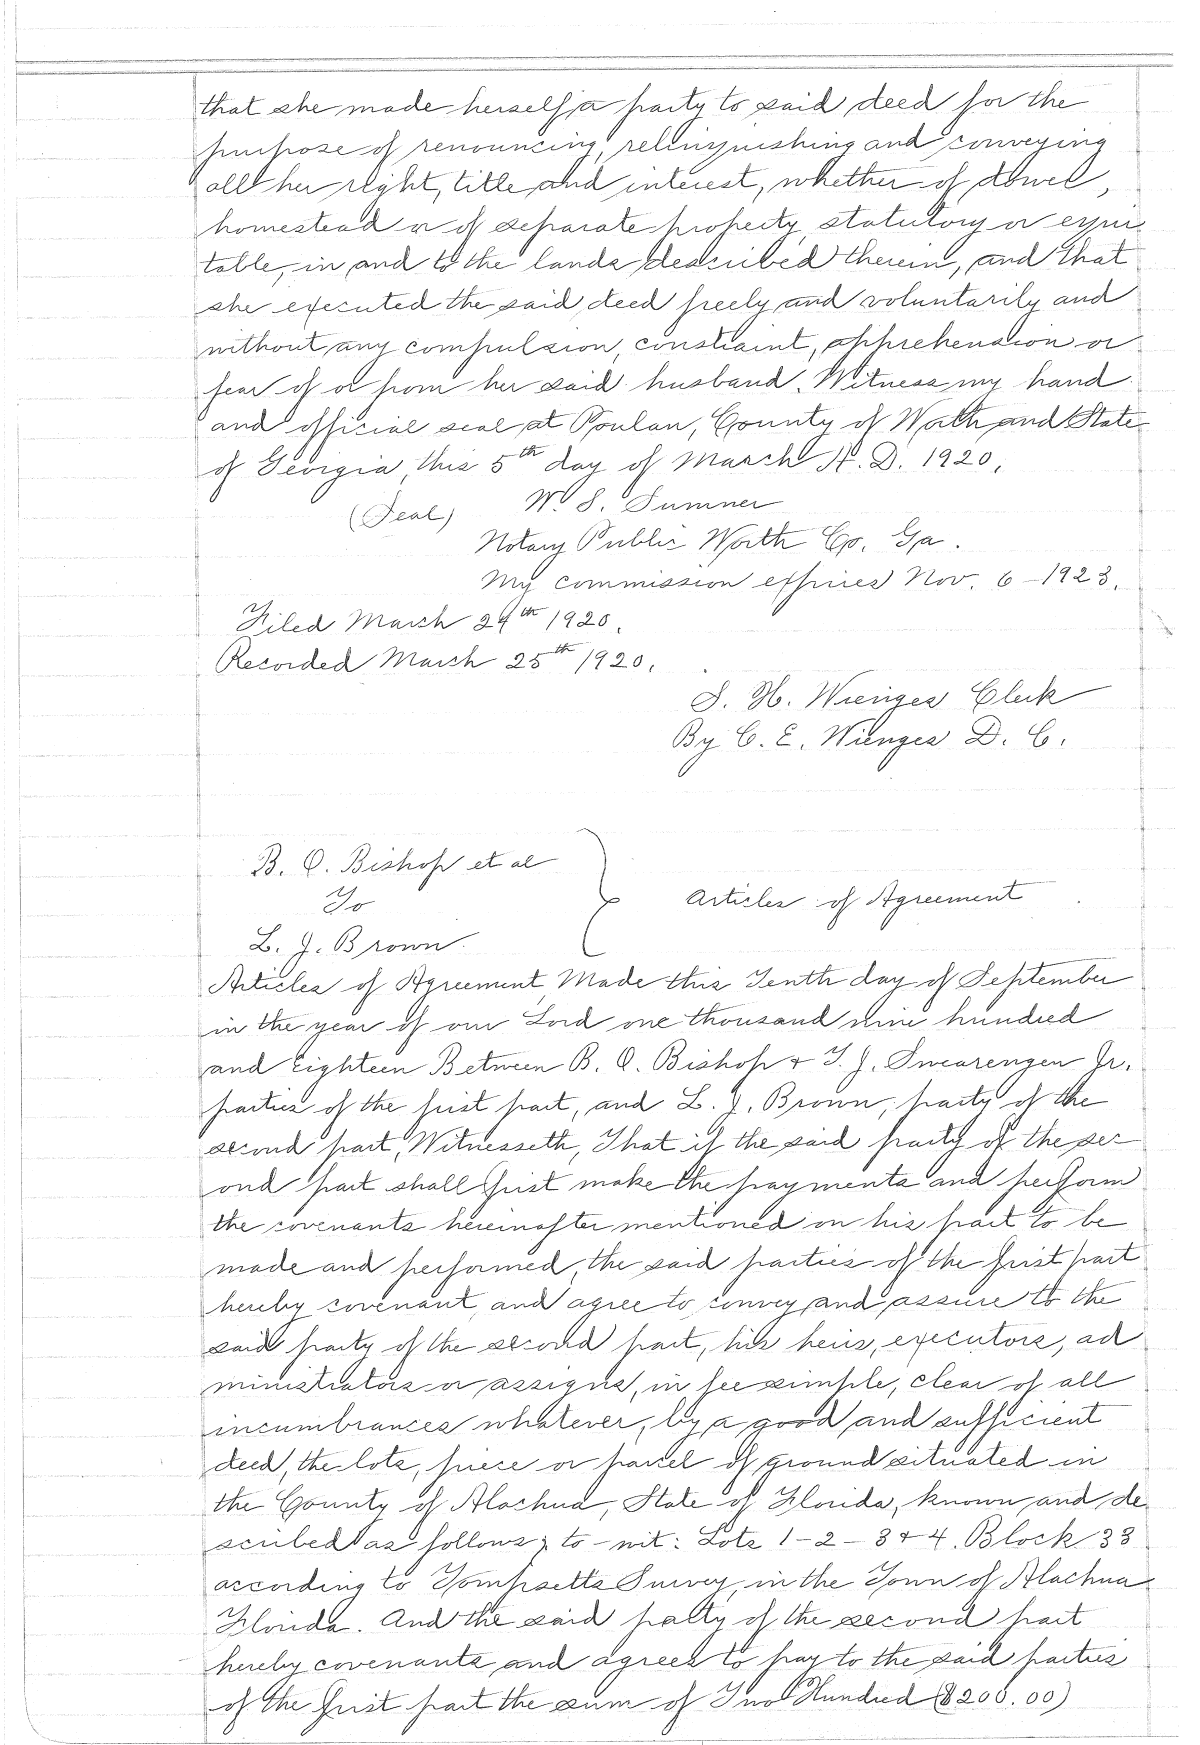 that she made herself a party to said deed for the
purpose of renouncing, relinquishing and conveying
all her right, title and interest, whether of dower,
homestead or of separate property, statutory or equi
table, in and to the lands described therein, and that
she executed the said deed freely and voluntarily and
without any compulsion, constraint, apprehension or
fear of or from her said husband. Witness my hand
and official seal at Poulan, County of Worth and State
of Georgia, this 5th day of March A. D. 1920.
(Seal) W. S. Sumner
Notary Public Worth Co. Ga.
My commission expires Nov. 6-1923.
Filed March 24th 1920.
Recorded March 25th 1920.
S. H. Wienges Clerk
By C. E. Wienges D. C.
B. O. Bishop et al
To
Articles of Agreement
L. J. Brown.
Articles of Agreement, Made this Tenth day of September
in the year of our Lord one thousand nine hundred
and Eighteen Between B. O. Bishop & T. J. Swearengen Jr.
parties of the first part, and L. J. Brown, party of the
second part, Witnesseth, That if the said party of the sec
ond part shall first make the payments and perform
the covenants hereinafter mentioned on his part to be
made and performed, the said parties of the first part
hereby covenant, and agree to convey and assure to the
said party of the second part, his heirs, executors, ad
ministrators or assigns, in fee simple, clear of all
incumbrances whatever, by a good and sufficient
deed, the lots, piece or parcel of ground situated in
the County of Alachua, State of Florida, known and de
scribed as follows; to-wit: Lots 1-2-3 & 4. Block 33
according to Tompsetts Survey, in the Town of Alachua
Florida. And the said party of the second part
hereby covenants and agrees to pay to the said parties
of the first part the sum of Two Hundred ($200.00)